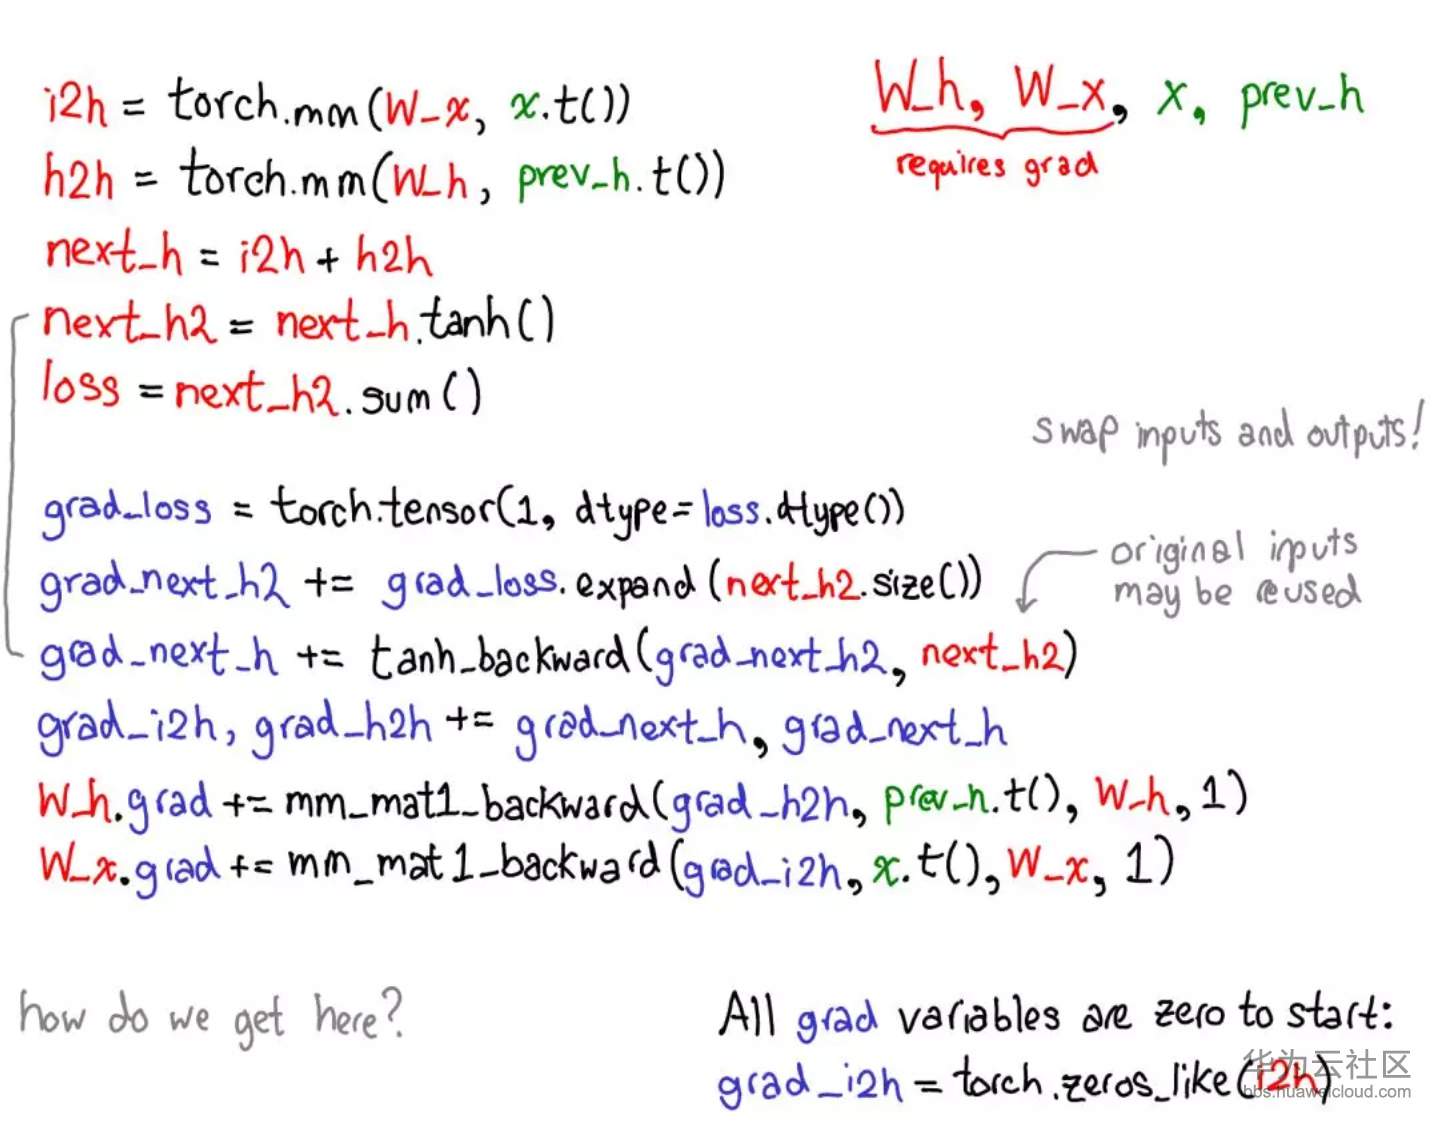 i2h = torch.mm(W_x, x.t())
h2h = torch.mm(W_h, prev_h.t())
next_h = i2h + h2h
next_h2 = next_h.tanh()
loss = next_h2.sum()
W_h, W_x, x, prev_h
requires grad
swap inputs and outputs!
grad_loss = torch.tensor(1, dtype=loss.dtype())
grad_next_h2 += grad_loss.expand(next_h2.size())
original inputs
may be reused
grad_next_h += tanh_backward(grad_next_h2, next_h2)
grad_i2h, grad_h2h += grad_next_h, grad_next_h
W_h.grad += mm_mat1_backward(grad_h2h, prev_h.t(), W_h, 1)
W_x.grad += mm_mat1_backward(grad_i2h, x.t(), W_x, 1)
how do we get here?
All grad variables are zero to start:
grad_i2h = torch.zeros_like(i2h)
华为云社区
bbs.huaweicloud.com